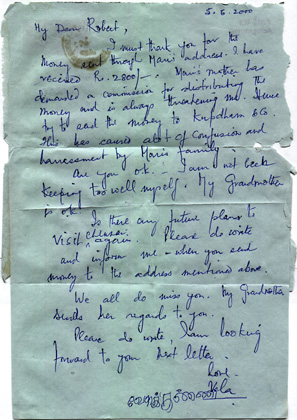 5.5.2000
My Dear Robert,
I must thank you for the
money sent through Mari's address. I have
received Rs. 2800/- Mari's mother has
demanded a commission for distributing the
money and is always threatening me. Hence
try to send the money to
This has caused alot of confusion and
harrassment by Mari's family.
Are you ok. I am not
keeping too well myself. My Grandmother
is ok.
Is there any future plans to
visit again. Please do write
and inform me - when you send
money to the address mentioned above.
We all do miss you. My Grandmother
sends her regards to you.
Please do write, I am looking
forward to your next letter.
Love